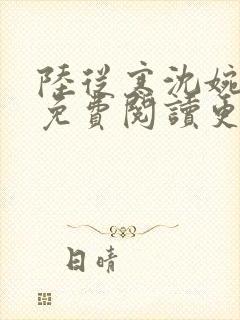 陸從寒沈婉
免費閱讀更
日晴